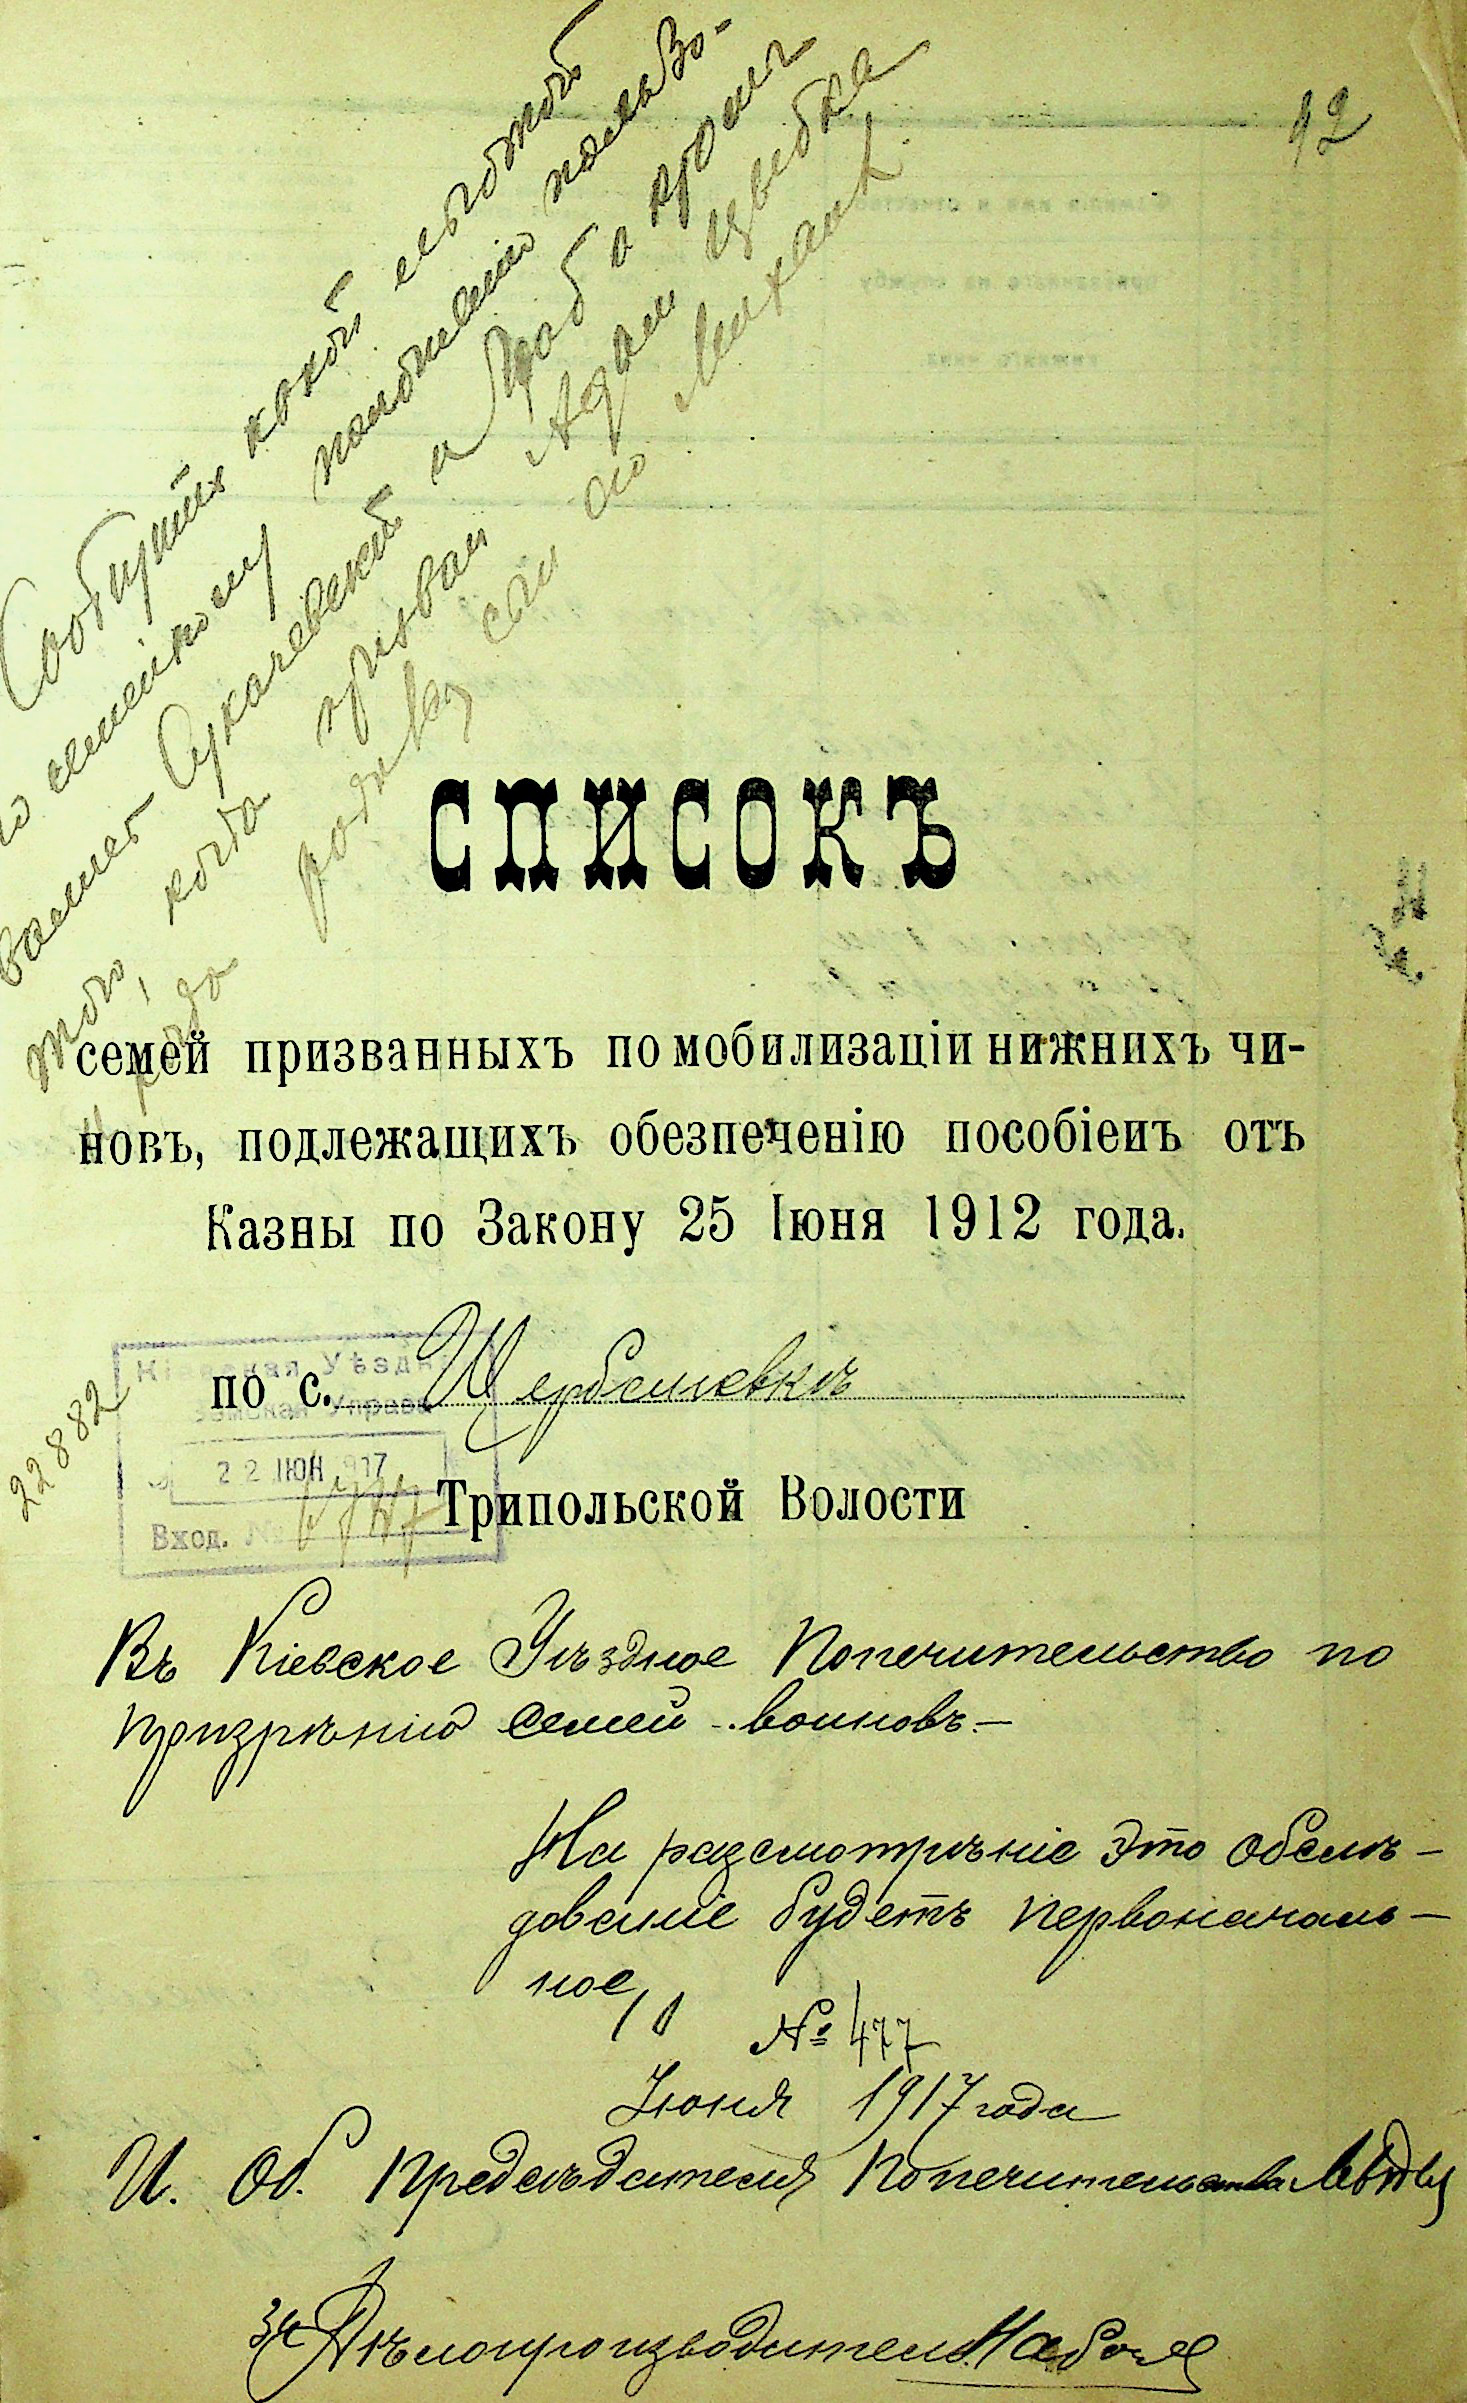 42
Сообщить какой льготой
по семейному положению пользо-
вались Сукачевский и
того, когда призван Адам Цвебка
и когда сын его Михаил
СПИСОКЪ
семей призванныхъ по мобилизаціи нижнихъ чи-
новъ, подлежащихъ обезпеченію пособіемъ отъ
Казны по Закону 25 Іюня 1912 года.
по с. Щербанивкѣ
Кіевская Уѣздн.
Земская Управа
22 ІЮН 1917
Вход. №
22882
Трипольской Волости
Въ Кіевское Уѣздное Попечительство по
призрѣнію семей воиновъ.—
На разсмотрѣніе Это обслѣ-
дованіе будетъ первоначаль-
ное
№ 477
Іюня 1917 года
И. Об. Предсѣдателя Попечительства
За Дѣлопроизводителя